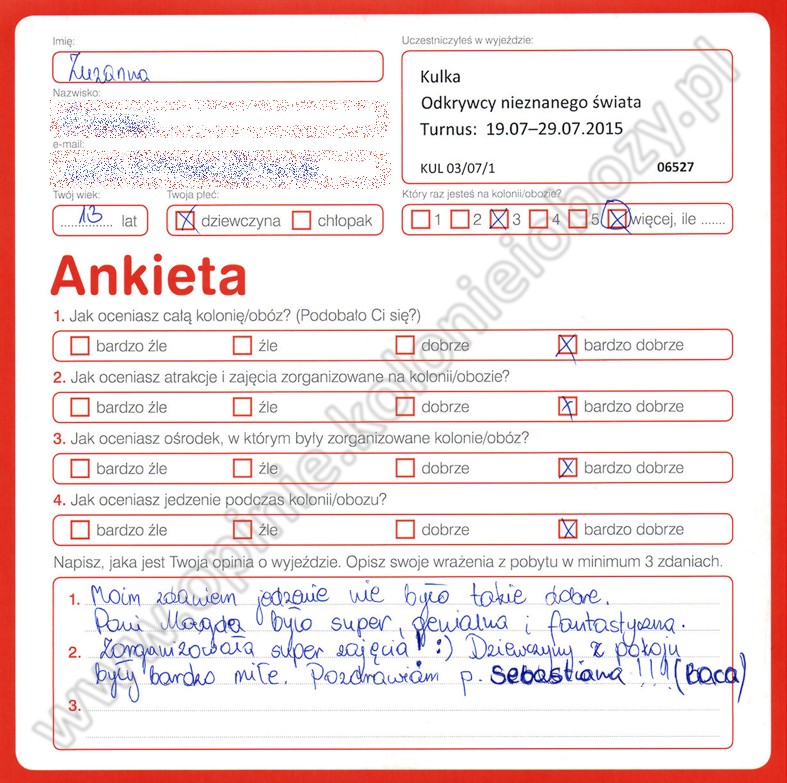 Imię:
Zuzanna
Nazwisko:
e-mail:
Twój wiek:
13 lat
Twoja płeć:
dziewczyna chłopak
Uczestniczyłeś w wyjeździe:
Kulka
Odkrywcy nieznanego świata
Turnus: 19.07–29.07.2015
KUL 03/07/1 06527
Który raz jesteś na kolonii/obozie?
1 2 3 4 5 więcej, ile .......
Ankieta
1. Jak oceniasz całą kolonię/obóz? (Podobało Ci się?)
bardzo źle źle dobrze bardzo dobrze
2. Jak oceniasz atrakcje i zajęcia zorganizowane na kolonii/obozie?
bardzo źle źle dobrze bardzo dobrze
3. Jak oceniasz ośrodek, w którym były zorganizowane kolonie/obóz?
bardzo źle źle dobrze bardzo dobrze
4. Jak oceniasz jedzenie podczas kolonii/obozu?
bardzo źle źle dobrze bardzo dobrze
Napisz, jaka jest Twoja opinia o wyjeździe. Opisz swoje wrażenia z pobytu w minimum 3 zdaniach.
1. Moim zdaniem jedzenie nie było takie dobre.
Pani Magda było super, genialna i fantastyczna.
2. Zorganizowała super zajęcia! :) Dziewczyny z pokoju
były bardzo miłe. Pozdrawiam p. Sebastiana !!! (baca)
3.
www.opinie.kolonieiobozy.pl